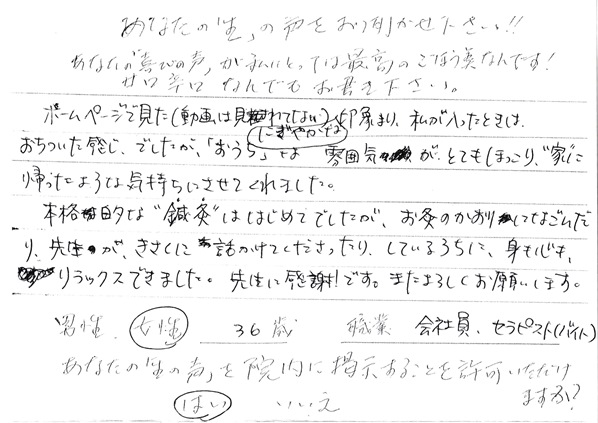 あなたの「生」の声をお聞かせ下さい!!
あなたの「喜びの声」が私にとっては最高のごほう美なんです!
甘口辛口なんでもお書き下さい。
ホームページで見た(動画は見れてない)印象より、私が入ったときは、
にぎやかな
おちついた感じ、でしたが、「おうち」な 雰囲気が、とてもほっこり、"家"に
帰ったような気持ちにさせてくれました。
本格的な"鍼灸"ははじめてでしたが、お灸のかおりになごんだ
り、先生が、きさくに話かけてくださったり、しているうちに、身も心も、
リラックスできました。先生に感謝!です。またよろしくお願いします。
男性 女性 36歳 職業 会社員、セラピスト(バイト)
あなたの「生の声」を院内に掲示することを許可いただけ
ますか?
はい いいえ